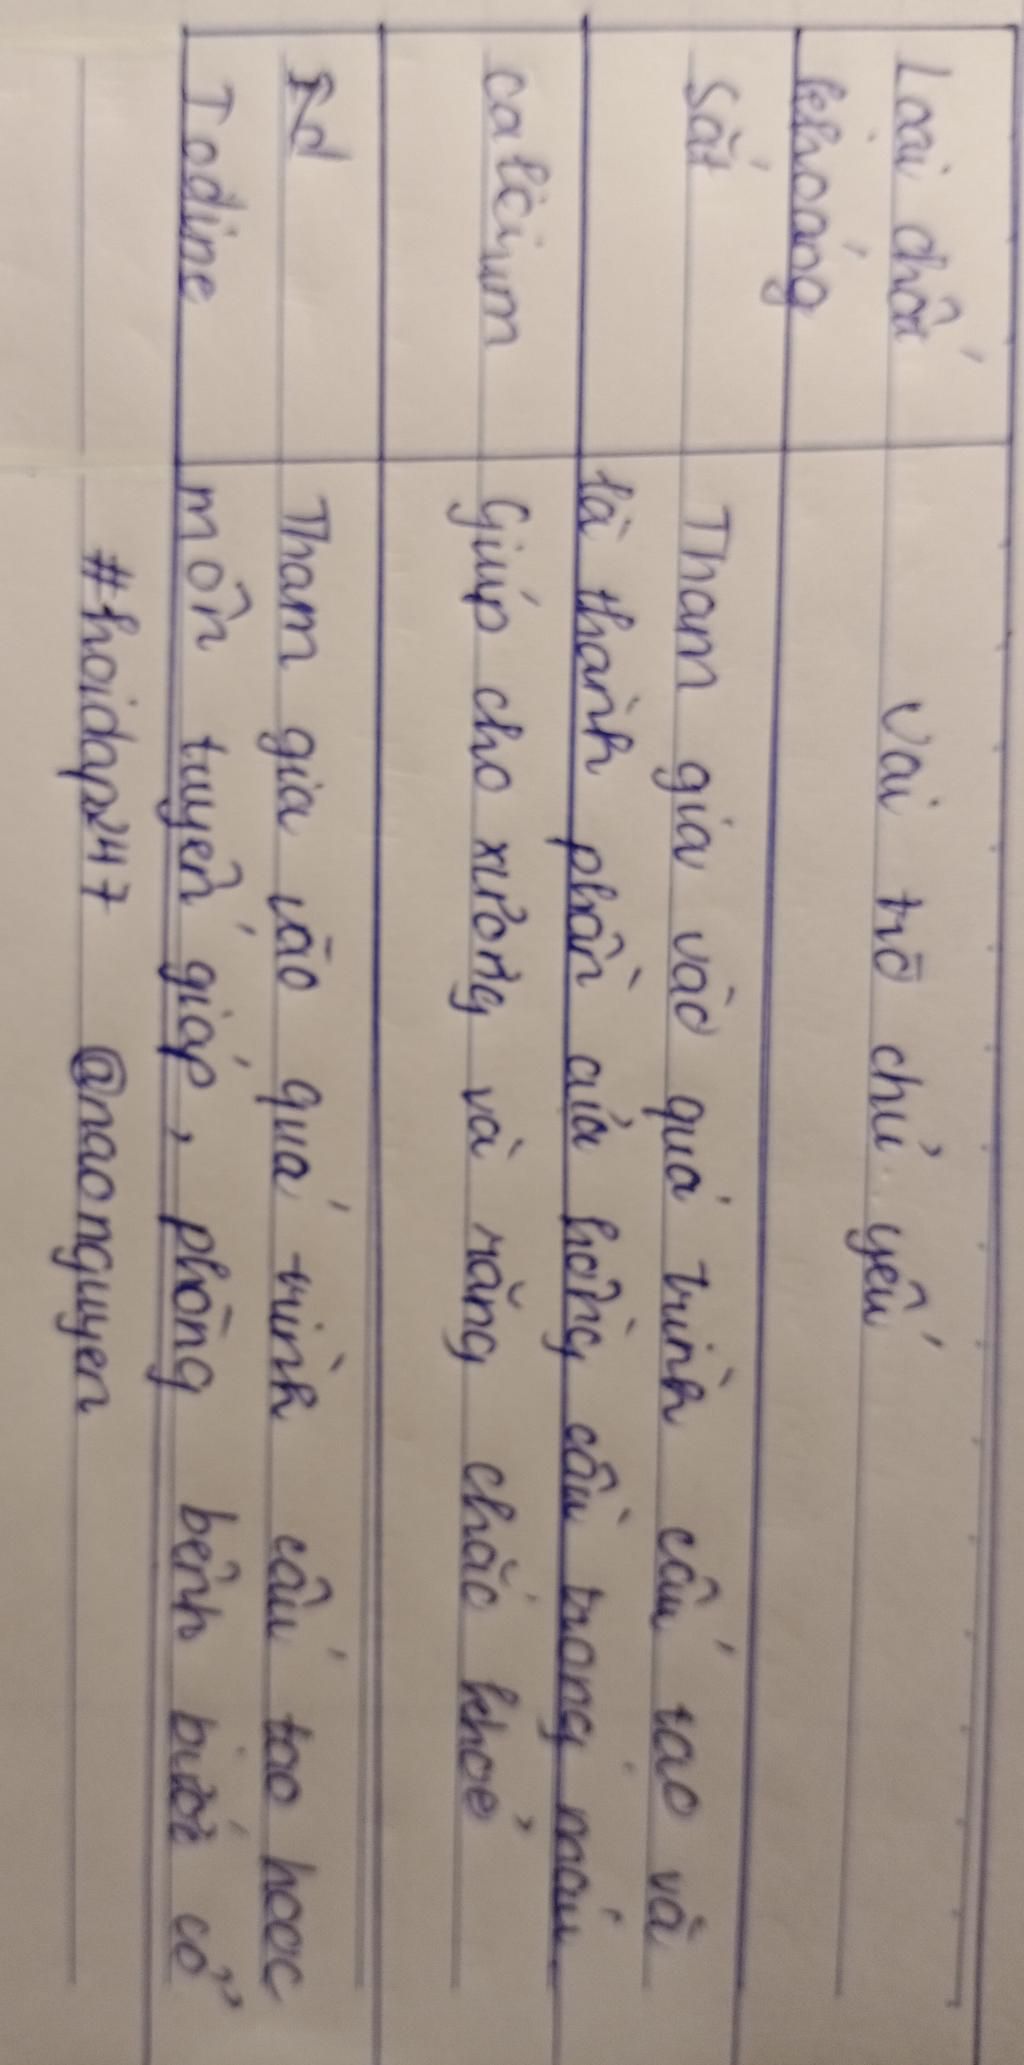 Loại chất Vai trò chủ yếu
khoáng
Sắt Tham gia vào quá trình cấu tạo và
là thành phần của hồng cầu trong máu
calcium Giúp cho xương và răng chắc khoẻ
Tham gia vào quá trình cấu tạo hooc
Iođine môn tuyến giáp, phòng bệnh bướu cổ
#hoidap247 @naonguyen